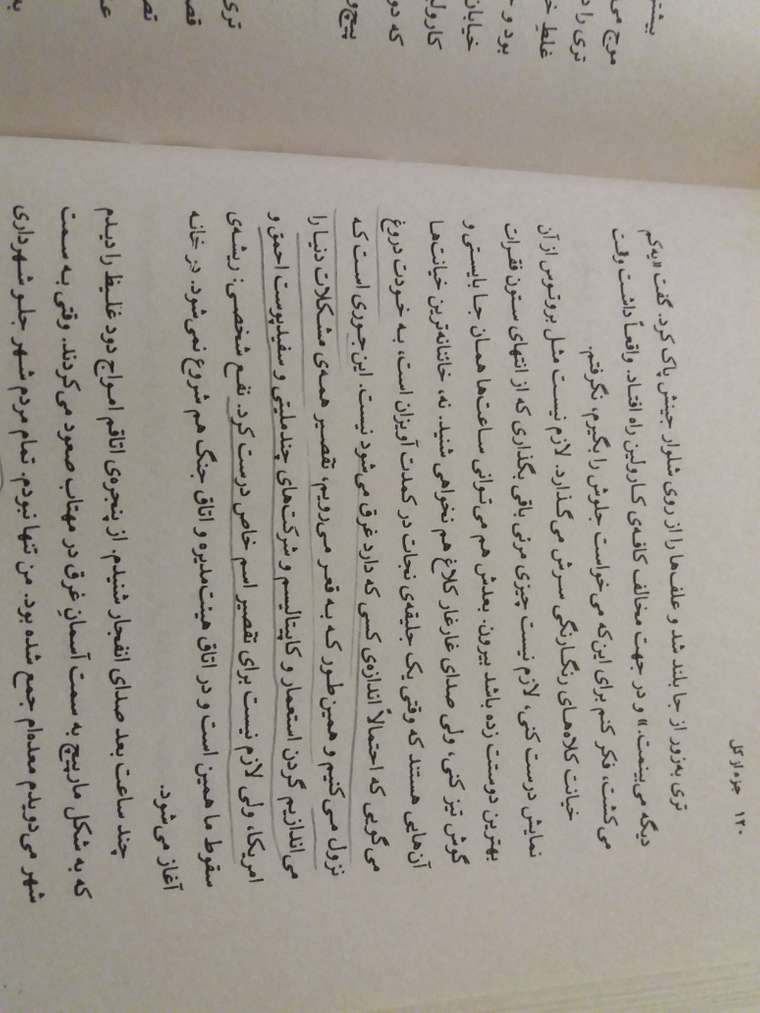 ۱۲۰ جزء از کل
تری به‌زور از جا بلند شد و علف‌ها را از روی شلوار جینش پاک کرد. گفت «یه‌کم
دیگه می‌بینمت.» و در جهت مخالف کافه‌ی کارولین راه افتاد. واقعاً داشت وقت
می‌کشت، فکر کنم برای این‌که می‌خواست جلوش را بگیرم، نگرفتم.
خیانت کلاه‌های رنگارنگی سرش می‌گذارد. لازم نیست مثل بروتوس از آن
نمایش درست کنی، لازم نیست چیزی مرئی باقی بگذاری که از انتهای ستون فقرات
بهترین دوستت زده باشد بیرون. بعدش هم می‌توانی ساعت‌ها همان جا بایستی و
گوش تیز کنی، ولی صدای غارغار کلاغ هم نخواهی شنید. نه، خائنانه‌ترین خیانت‌ها
آن‌هایی هستند که وقتی یک جلیقه‌ی نجات در کمدت آویزان است، به خودت دروغ
می‌گویی که احتمالاً اندازه‌ی کسی که دارد غرق می‌شود نیست. این‌جوری است که
نزول می‌کنیم و همین‌طور که به قعر می‌رویم، تقصیر همه‌ی مشکلات دنیا را
می‌اندازیم گردن استعمار و کاپیتالیسم و شرکت‌های چندملیتی و سفیدپوست احمق و
امریکا، ولی لازم نیست برای تقصیر اسم خاص درست کرد. نفع شخصی: ریشه‌ی
سقوط ما همین است و در اتاق هیئت‌مدیره و اتاق جنگ هم شروع نمی‌شود. در خانه
آغاز می‌شود.
چند ساعت بعد صدای انفجار شنیدم. از پنجره‌ی اتاقم امواج دود غلیظ را دیدم
که به شکل مارپیچ به سمت آسمانِ غرق در مهتاب صعود می‌کردند. وقتی به سمت
شهر می‌دویدم معده‌ام جمع شده بود. من تنها نبودم. تمام مردم شهر جلو شهرداری